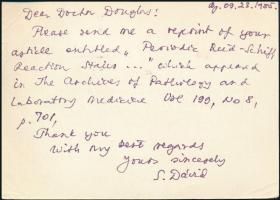 Bp. 09.28.1985.
Dear Doctor Douglas!
Please send me a reprint of your
article entitled „Periodic Acid-Schiff
Reaction Stains ..." which appeared
in The Archives of Pathology and
Laboratory Medicine Vol 199, No 8,
p. 701,
Thank you
With my best regards
Yours sincerely
S. Dávid